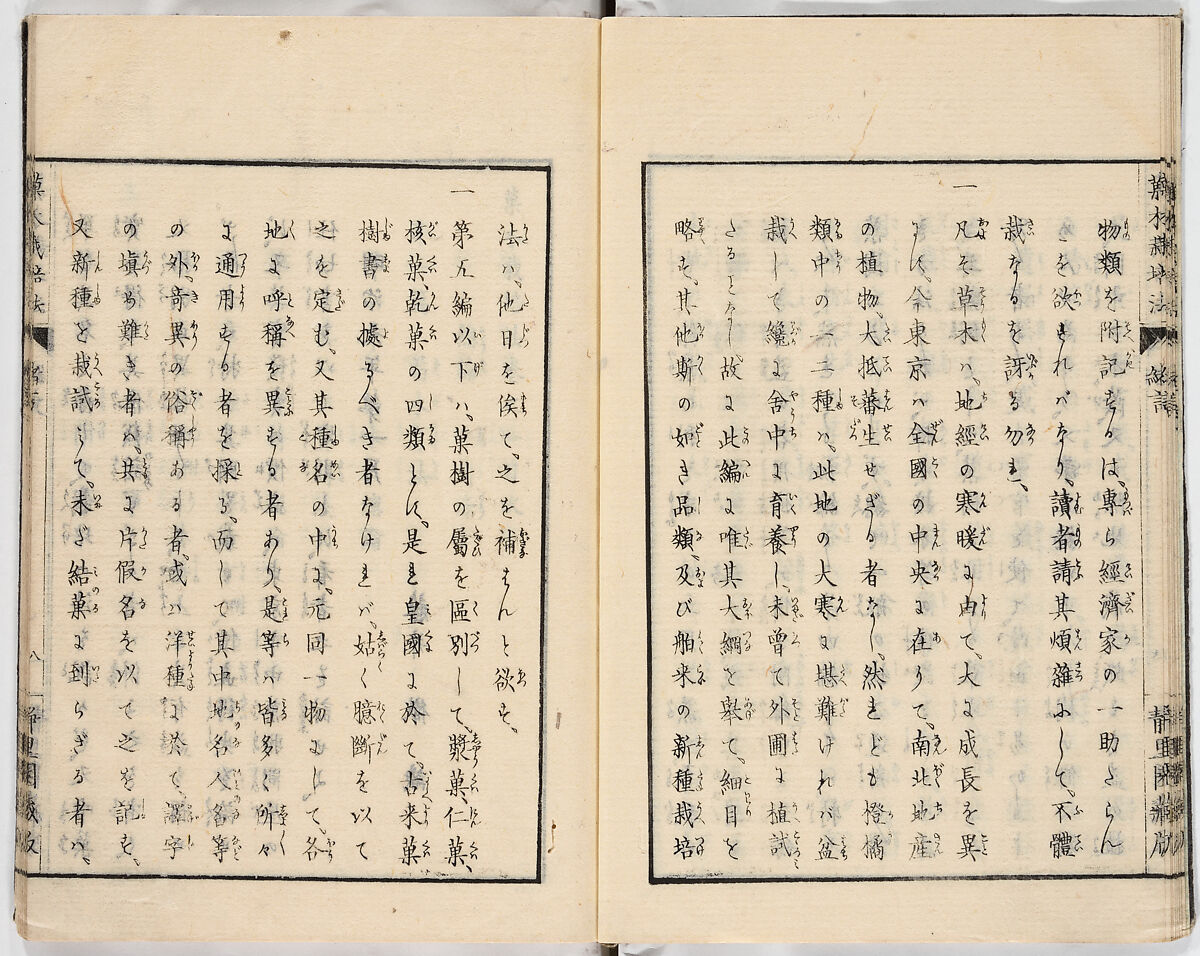 物類を附記するは、專ら經濟家の一助たらん
ことを欲すればなり、讀者請其煩雜にして、不體
裁なるを訝る勿れ、
一凡そ草木ハ、地經の寒暖に由て、大に成長を異
にす、今東京ハ全國の中央に在りて、南北地産
の植物、大抵蕃生せざる者なし、然れども橙橘
類中の二三種ハ、此地の大寒に堪難けれバ盆
栽して纔に舍中に育養し、未曾て外圃に植試
たることなし故に此編に唯其大綱を擧て、細目を
略す、其他斯の如き品類、及び舶来の新種栽培
法ハ、他日を俟て、之を補はんと欲す、
一第五編以下ハ、菓樹の屬を區別して、漿菓、仁菓、
核菓、乾菓の四類とす、是れ皇國に於て、古来菓
樹書の據るべき者なけれバ、姑く臆斷を以て
之を定む、又其種名の中に、元同一物にして、各
地に呼稱を異する者あり、是等ハ皆多く所々
に通用する者を採る、而して其中地名人名等
の外、奇異の俗稱ある者、或ハ洋種に於て、譯字
の塡め難き者ハ、共に片假名を以て之を記す、
又新種を栽試して、未だ結菓に到らざる者ハ、
菓木栽培法
緒言
靜里園藏版
菓木栽培法
緒言
八
靜里園藏版